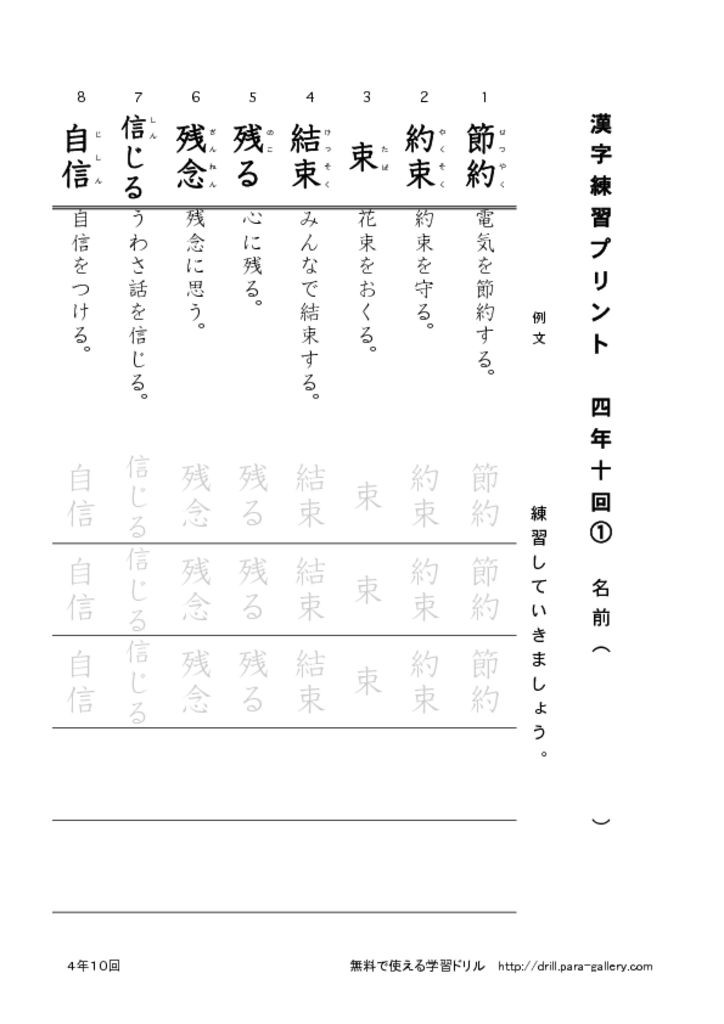 漢字練習プリント　四年十回①　名前（　　　）
例文
練習していきましょう。
1
節約
せつやく
電気を節約する。
節約
節約
節約
2
約束
やくそく
約束を守る。
約束
約束
約束
3
束
たば
花束をおくる。
束
束
束
4
結束
けっそく
みんなで結束する。
結束
結束
結束
5
残る
のこ
心に残る。
残る
残る
残る
6
残念
ざんねん
残念に思う。
残念
残念
残念
7
信じる
しん
うわさ話を信じる。
信じる
信じる
信じる
8
自信
じしん
自信をつける。
自信
自信
自信
4年10回
無料で使える学習ドリル　http://drill.para-gallery.com